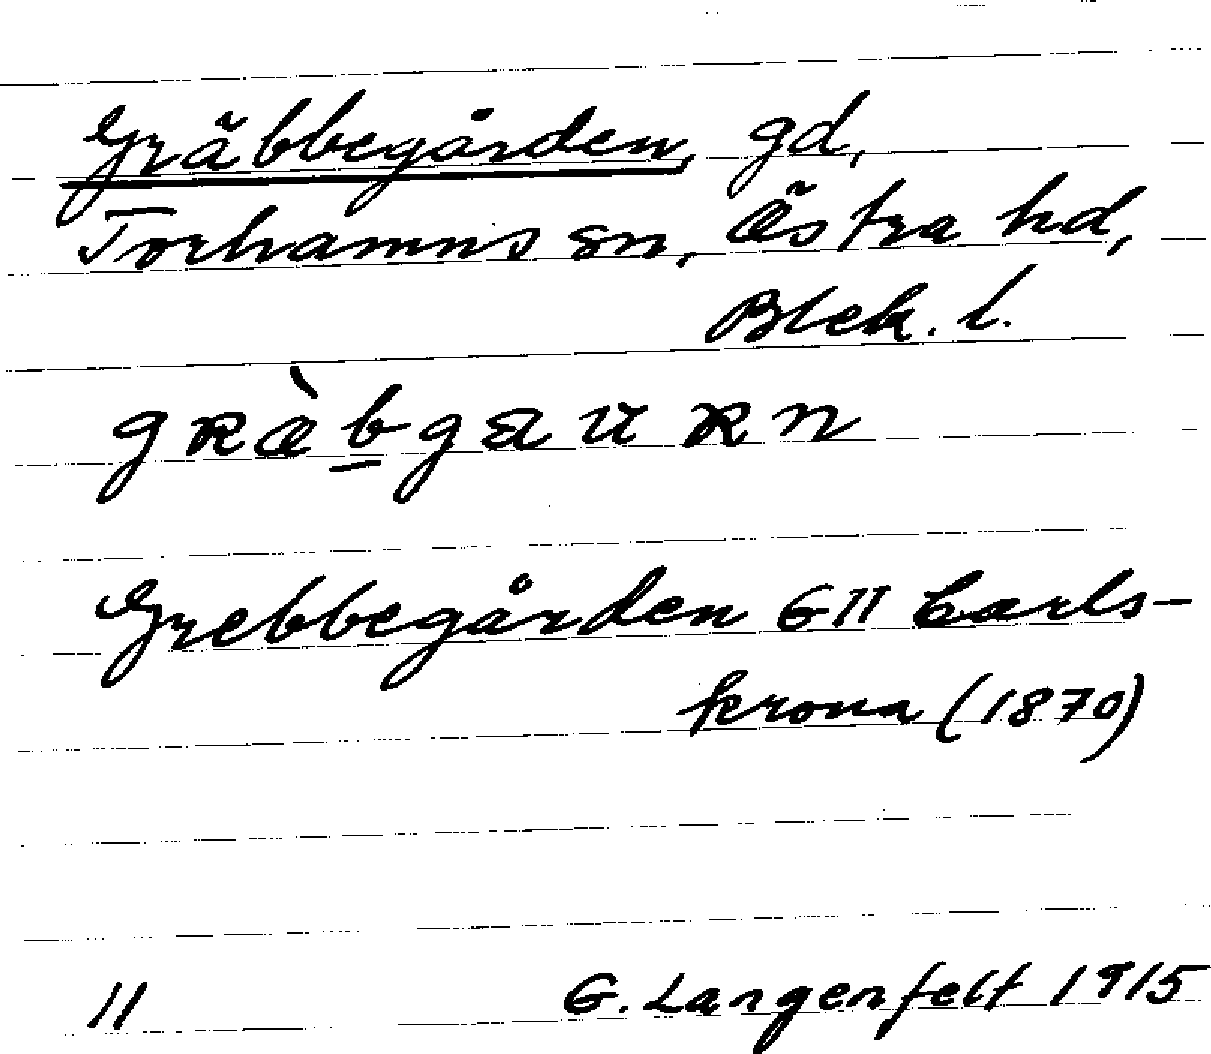 Gräbbegården, gd,
Torhamns sn, Östra hd,
Blek. l.
gʀàb̲gauʀn
Grebbegården GII Carls-
krona (1870)
11 G. Langenfelt 1915